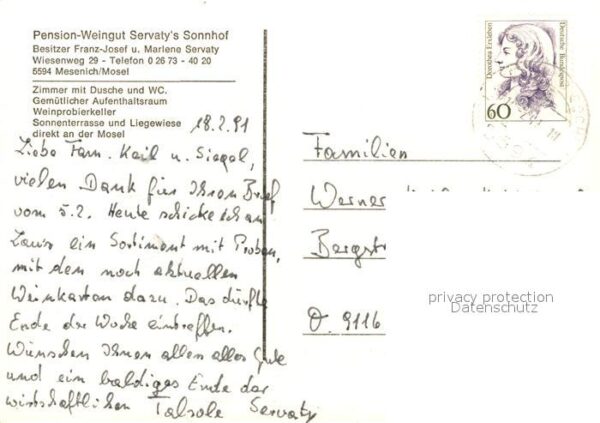 Pension-Weingut Servaty's Sonnhof
Besitzer Franz-Josef u. Marlene Servaty
Wiesenweg 29 - Telefon 0 26 73 - 40 20
5594 Mesenich/Mosel
Zimmer mit Dusche und WC.
Gemütlicher Aufenthaltsraum
Weinprobierkeller
Sonnenterrasse und Liegewiese
direkt an der Mosel
18.2.91
Liebe Fam. Keil u. Siegel,
vielen Dank für Ihren Brief
vom 5.2. Heute schicke ich an
ein Sortiment mit Proben,
mit den noch aktuellen
Weinkarten dazu. Das dürfte
Ende der Woche eintreffen.
Wünschen Ihnen allen alles Gute
und ein baldiges Ende der
wirtschaftlichen Talsole Servaty
Dorothea Erxleben
Deutsche Bundespost
60
Familien
Werner
Bergstr
O. 9116
privacy protection
Datenschutz